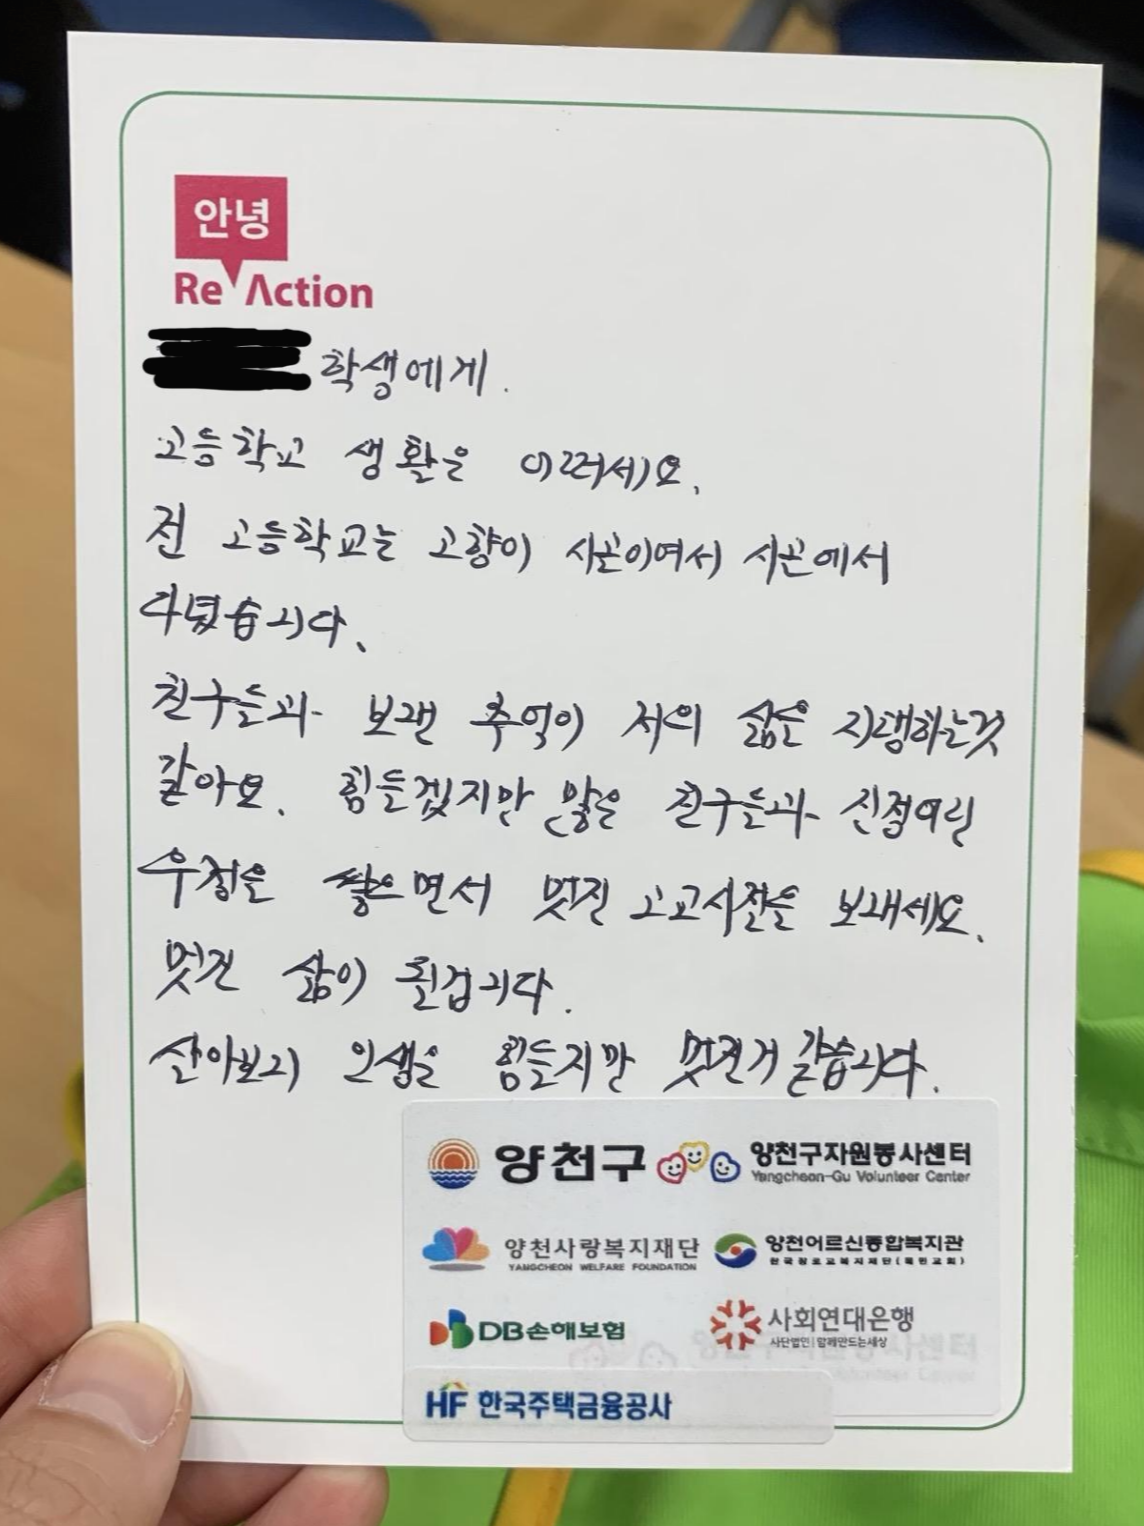 안녕
Re Action
학생에게.
고등학교 생활은 어떠세요.
전 고등학교는 고향이 시골이여서 시골에서
다녔습니다.
친구들과 보낸 추억이 저의 삶을 지탱하는것
같아요. 힘들겠지만 많은 친구들과 진정어린
우정을 쌓으면서 멋진 고교시절을 보내세요.
멋진 삶이 될겁니다.
살아보니 인생은 힘들지만 멋진거 같습니다.
양천구 양천구자원봉사센터
Yangcheon-Gu Volunteer Center
양천사랑복지재단 양천어르신종합복지관
YANGCHEON WELFARE FOUNDATION 한국장로교복지재단(목민교회)
DB손해보험 사회연대은행
사단법인|함께만드는세상
HF 한국주택금융공사